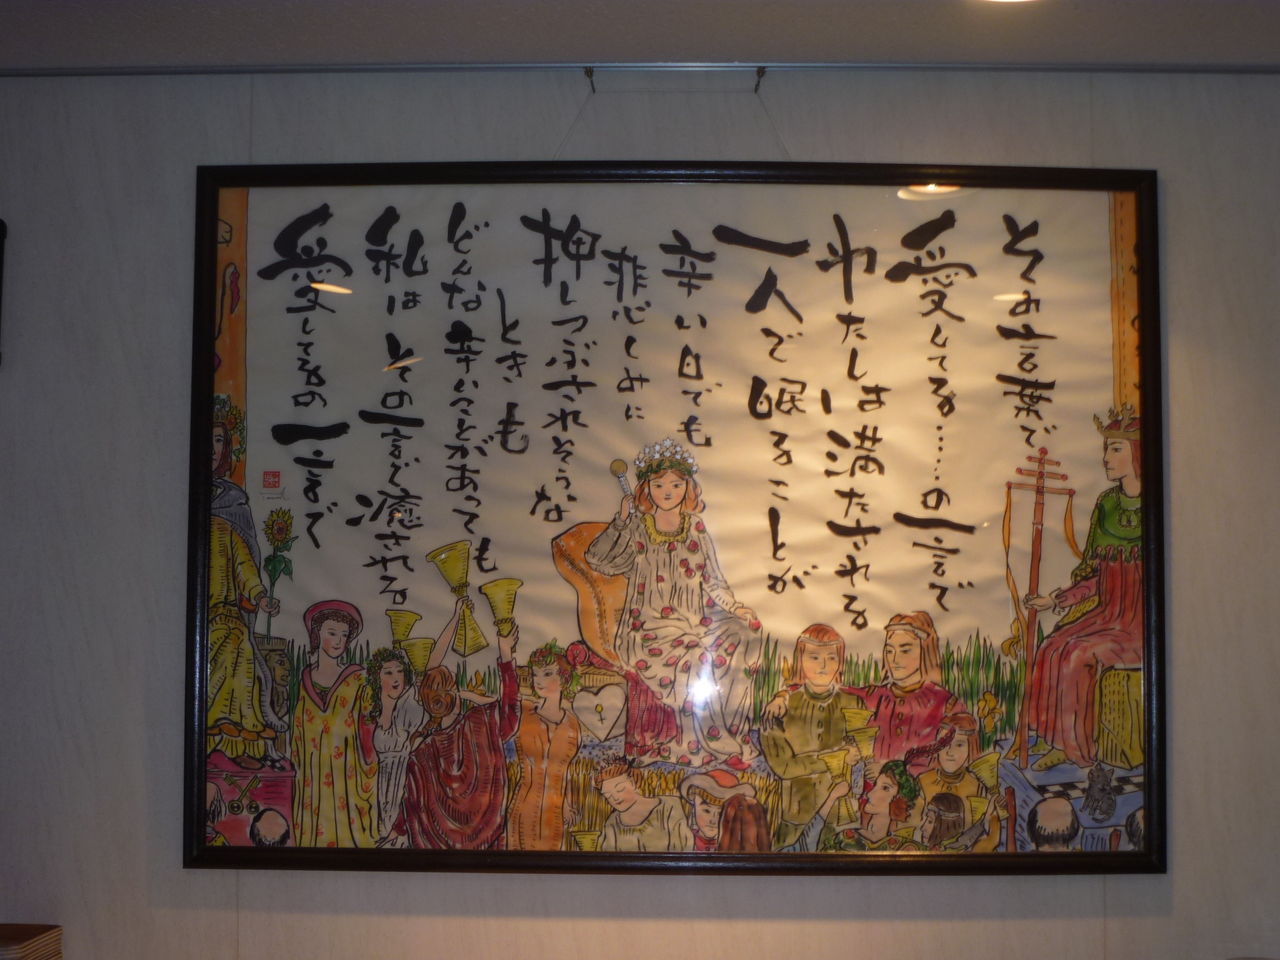 その言葉で
愛してる……の一言で
わたしは満たされる
一人で眠ることが
辛い日でも
悲しみに
押しつぶされそうな
ときも
どんな辛いことがあっても
私はその一言で癒される
愛してるの一言で